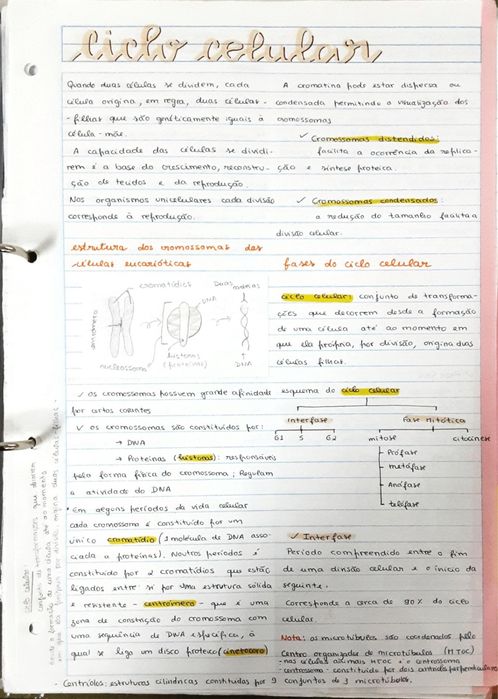 ciclo celular
Quando duas células se dividem, cada
célula origina, em regra, duas células-
-filhas que são geneticamente iguais à
célula-mãe.
A capacidade das células se dividi-
rem é a base do crescimento, reconstru-
ção de tecidos e da reprodução.
Nos organismos unicelulares cada divisão
corresponde à reprodução.
estrutura dos cromossomas das
células eucarióticas
cromatídios
Duas moléculas
DNA
centrómero
nucleossoma
histonas
(proteínas)
DNA
✓ os cromossomas possuem grande afinidade
por certos corantes
✓ os cromossomas são constituídos por:
→ DNA
→ Proteínas (histonas): responsáveis
pela forma física do cromossoma; Regulam
a atividade do DNA
• Em alguns períodos da vida celular
cada cromossoma é constituído por um
único cromatídio (1 molécula de DNA asso-
ciada a proteínas). Noutros períodos é
constituído por 2 cromatídios que estão
ligados entre si por uma estrutura sólida
e resistente - centrómero - que é uma
zona de constrição do cromossoma com
uma sequência de DNA específica, à
qual se liga um disco proteico (cinetocoro)
A cromatina pode estar dispersa ou
condensada permitindo a visualização dos
cromossomas
✓ Cromossomas distendidos:
facilita a ocorrência da replica-
ção e síntese proteica.
✓ Cromossomas condensados:
a redução do tamanho facilita a
divisão celular.
fases do ciclo celular
ciclo celular: conjunto de transforma-
ções que decorrem desde a formação
de uma célula até ao momento em
que ela própria, por divisão, origina duas
células filhas.
esquema do ciclo celular
Interfase
Fase mitótica
G1 S G2
mitose
citocinese
Prófase
metáfase
Anáfase
telófase
✓ Interfase
Período compreendido entre o fim
de uma divisão celular e o início da
seguinte.
Corresponde a cerca de 90% do ciclo
celular.
Nota: os microtúbulos são coordenados pelo
Centro organizador de microtúbulos (MTOC)
- nas células animais MTOC é o centrossoma
- centrossoma - constituído por dois centríolos perpendiculares
- Centríolos: estruturas cilíndricas constituídas por 9 conjuntos de 3 microtúbulos.
ciclo celular:
conjunto de transformações que decorrem
desde a formação de uma célula até ao momento
em que ela própria por divisão origina duas células filhas.